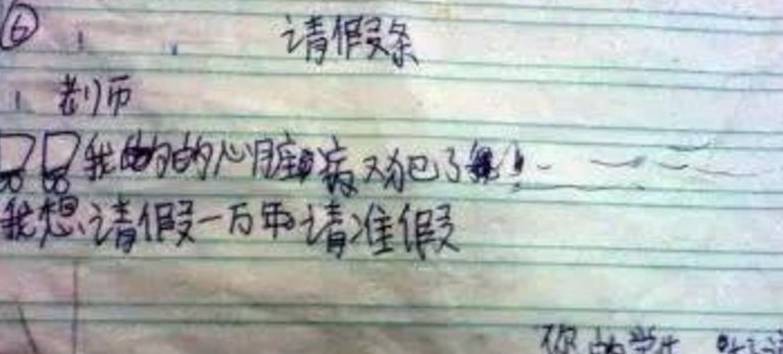 ⑥ 请假条
老师
我的的心脏病又犯了
我想请假一万年请准假
你的学生